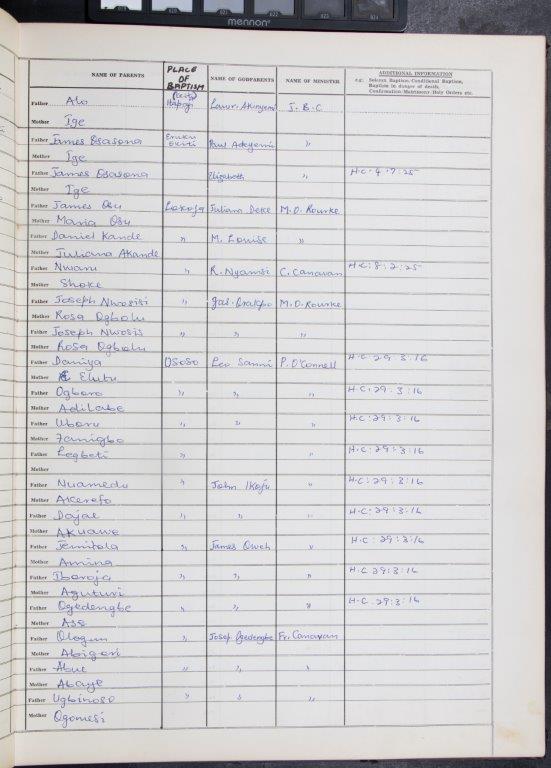 mennon
NAME OF PARENTS PLACE OF BAPTISM NAME OF GODPARENTS NAME OF MINISTER ADDITIONAL INFORMATION
e.g: Solemn Baptism, Conditional Baptism,
Baptism in danger of death,
Confirmation/Matrimony/Holy Orders etc.
Father Alo J. B. C
Mother Ige
Father James Osasona Paul Adeyemi "
Mother Ige
Father James Osasona Elizabeth " H.C: 4:7:25
Mother Ige
Father James Osu Lokoja Juliana Deke M.O. Rourke
Mother Maria Osu
Father Daniel Kande " M. Louise "
Mother Juliana Akande
Father Nwanu " R. Nyamsi C. Canavan H.C: 8:2:25
Mother Shoke
Father Joseph Nwosisi " M.O. Rourke
Mother Rosa Ogbolu
Father Joseph Nwosis " " "
Mother Rosa Ogbolu
Father Daniya Ososo Leo Sanni P. O'Connell H.C 29:3:16
Mother Elutu
Father Ogboro " " " H.C: 29:3:16
Mother Adilabe
Father Uboru " " " H.C: 29:3:16
Mother Zanigbo
Father Legbeti " " H.C: 29:3:16
Mother
Father Nuamedu " John Ikoju " H.C: 29:3:16
Mother Akerefo
Father Dajae " " " H.C: 29:3:16
Mother Akuawe
Father Temitola " James Oweh " H.C: 29:3:16
Mother Amina
Father Iboroja " " " H.C 29:3:16
Mother Aguturi
Father Ogedengbe " " " H.C. 29:3:16
Mother Aso
Father Ologun " Josep Ogedengbe Fr. Canavan
Mother Abigori
Father Abue " " "
Mother Abaye
Father Ugbinoso " " "
Mother Ogomesi